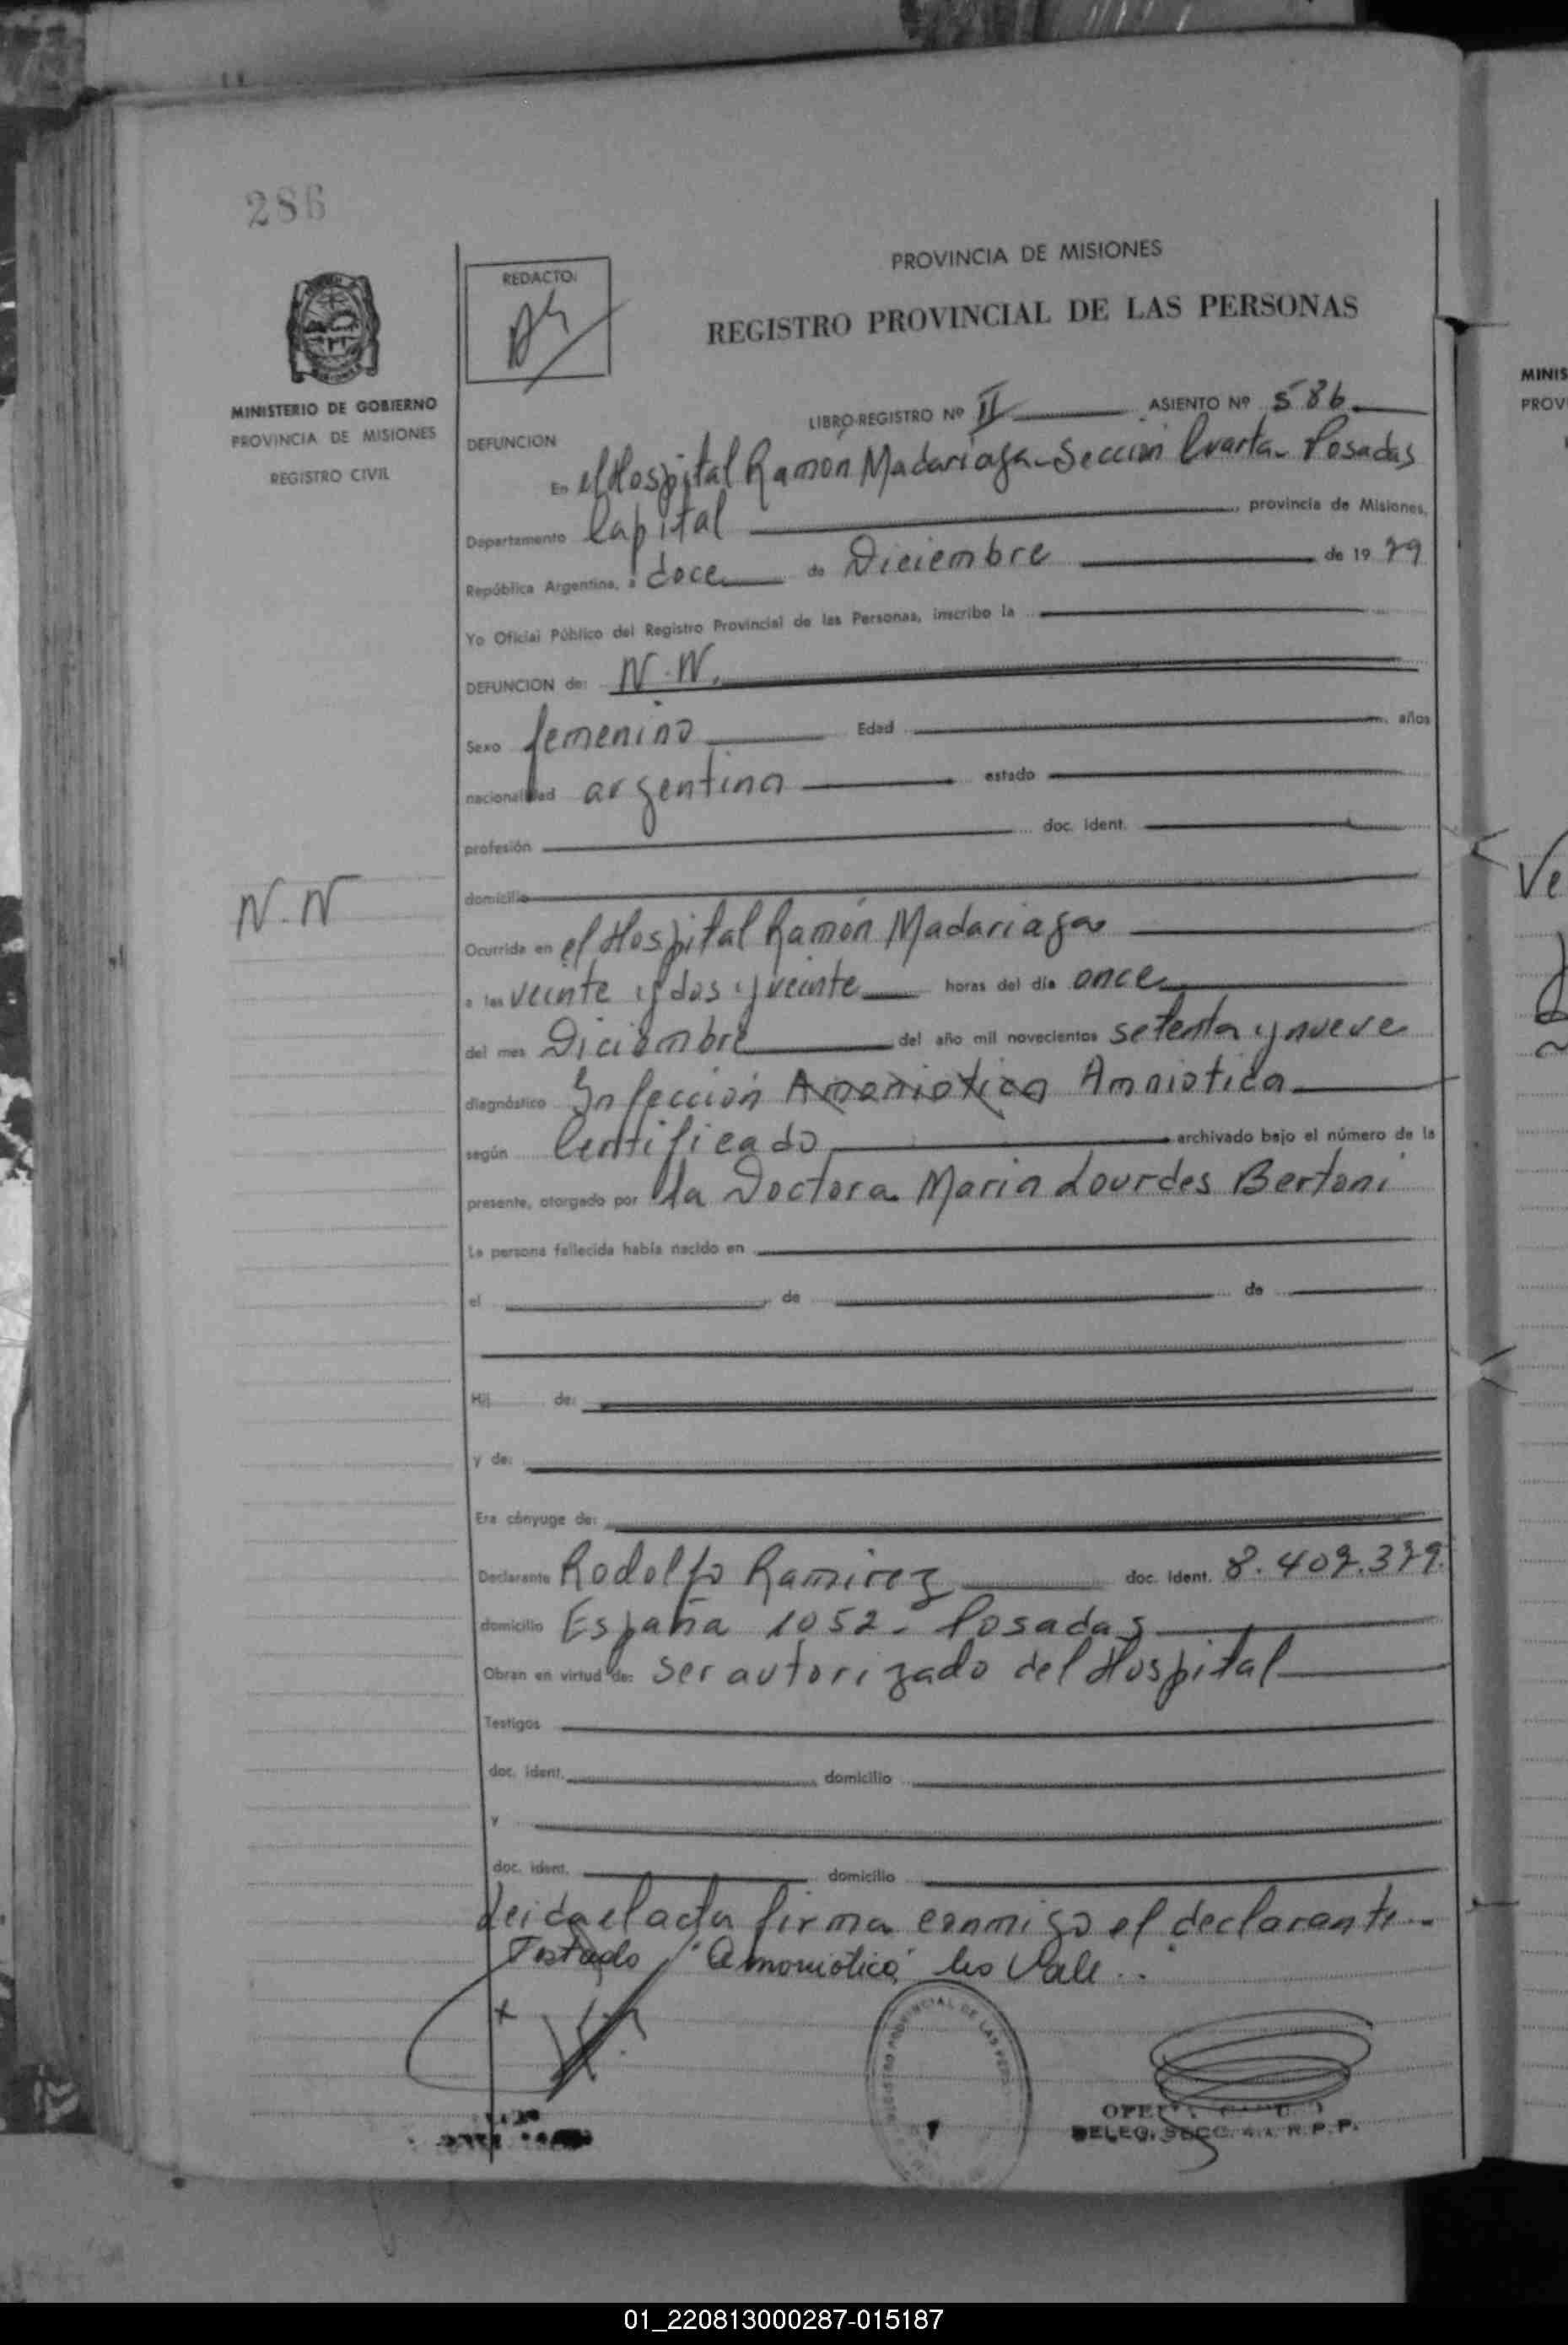 286
PROVINCIA DE MISIONES
REDACTO:
REGISTRO PROVINCIAL DE LAS PERSONAS
MINISTERIO DE GOBIERNO
PROVINCIA DE MISIONES
REGISTRO CIVIL
LIBRO-REGISTRO Nº II ASIENTO Nº 586
DEFUNCION
En el Hospital Ramón Madariaga - Sección Cuarta - Posadas
Departamento Capital, provincia de Misiones,
República Argentina, a doce de Diciembre de 1979
Yo Oficial Público del Registro Provincial de las Personas, inscribo la
DEFUNCION de: N.N.
Sexo femenino Edad años
nacionalidad argentina estado
profesión doc. ident.
N.N
domicilio
Ocurrida en el Hospital Ramón Madariaga
a las veinte y dos y veinte horas del día once
del mes Diciembre del año mil novecientos setenta y nueve
diagnóstico Infección Amoniotica Amniotica
según Certificado archivado bajo el número de la
presente, otorgado por la Doctora Maria Lourdes Bertoni
La persona fallecida había nacido en
el de de
Hij de:
y de:
Era cónyuge de:
Declarante Rodolfo Ramirez doc. ident. 8.409.379.
domicilio España 1052 - Posadas
Obran en virtud de: ser autorizado del Hospital
Testigos
doc. ident. domicilio
y
doc. ident. domicilio
Leida el acta firma conmigo el declarante
Testado "Amoniotica" No Vale..
REGISTRO PROVINCIAL DE LAS
DELEG. SECC. 4a. R.P.P.
MINIS
PROV
Ve
01_220813000287-015187